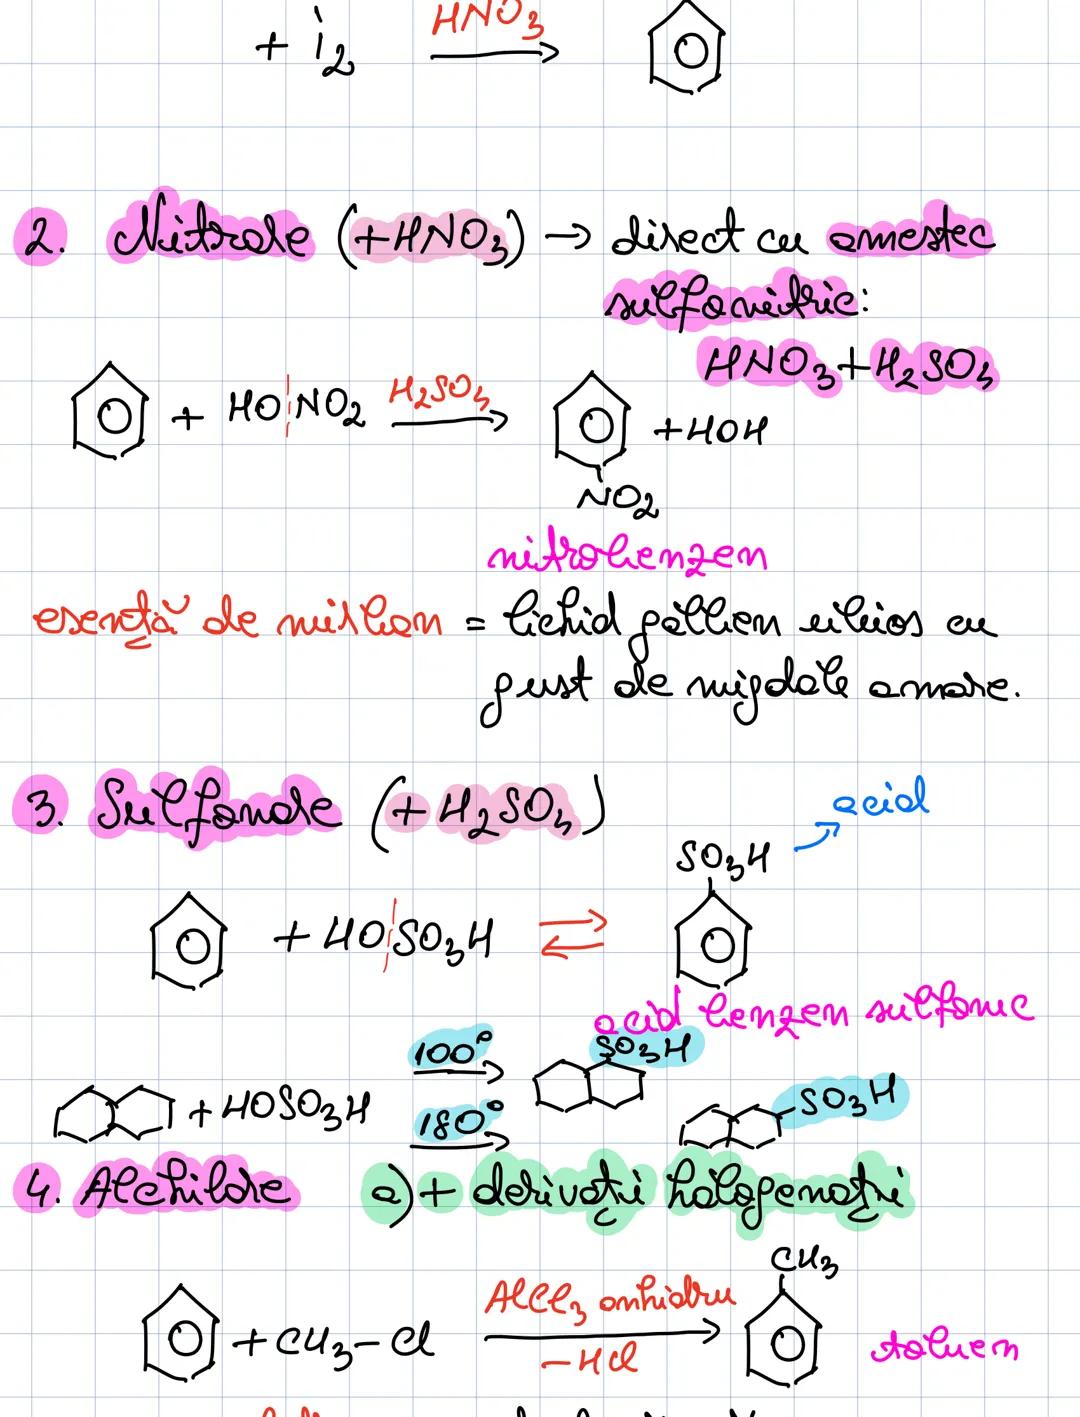 + i2 HNO3
2. Nitrare (+HNO3) → direct cu amestec
sulfonitric:
HNO3+H2SO4
+ HO NO2 H2SO4 +HOH
NO2
nitrobenzen
esență de mirban = lichid gălben uleios cu
gust de migdale amare.
3. Sulfonare (+H2SO4)
acid
SO3H
+ HO SO3H
acid benzen sulfonic
100° SO3H
+HOSO3H
180° SO3H
4. Alchilare a)+ derivați halogenați
CH3
+CH3-Cl AlCl3 anhidru
-HCl
toluen